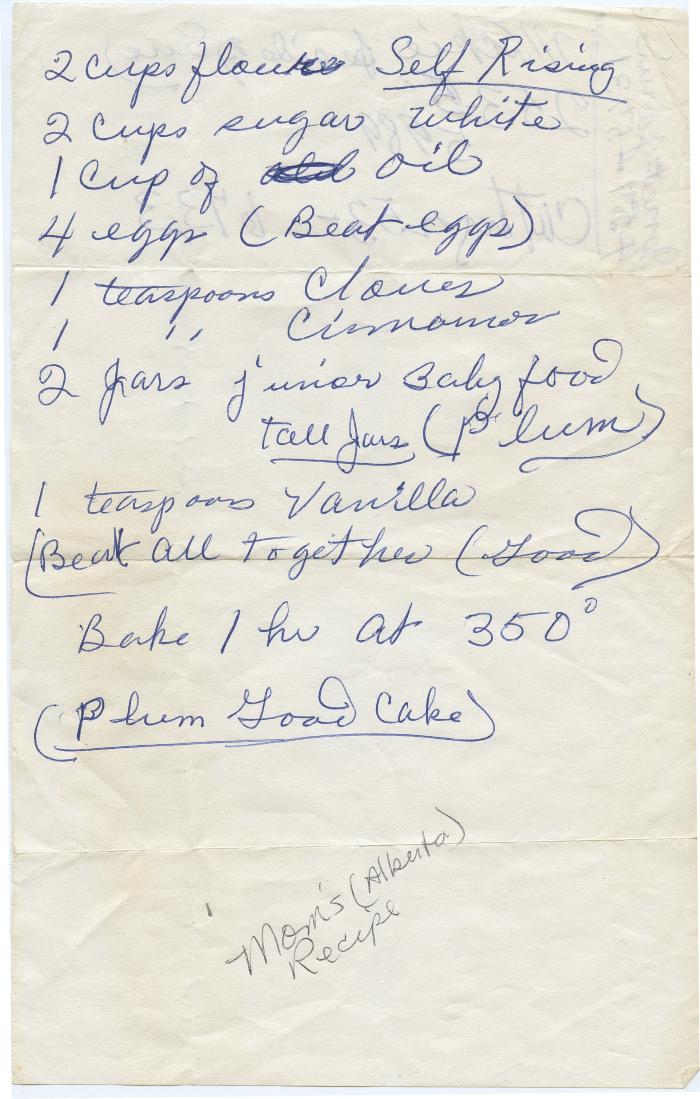 2 cups flour Self Rising
2 cups sugar white
1 cup of oil
4 eggs (Beat eggs)
1 teaspoons Cloves
1 " Cinnamon
2 Jars junior Baby food
tall Jars (Plum)
1 teaspoon Vanilla
(Beat all together (Good)
Bake 1 hr at 350°
(Plum Good Cake)
Mom's (Alberta)
Recipe